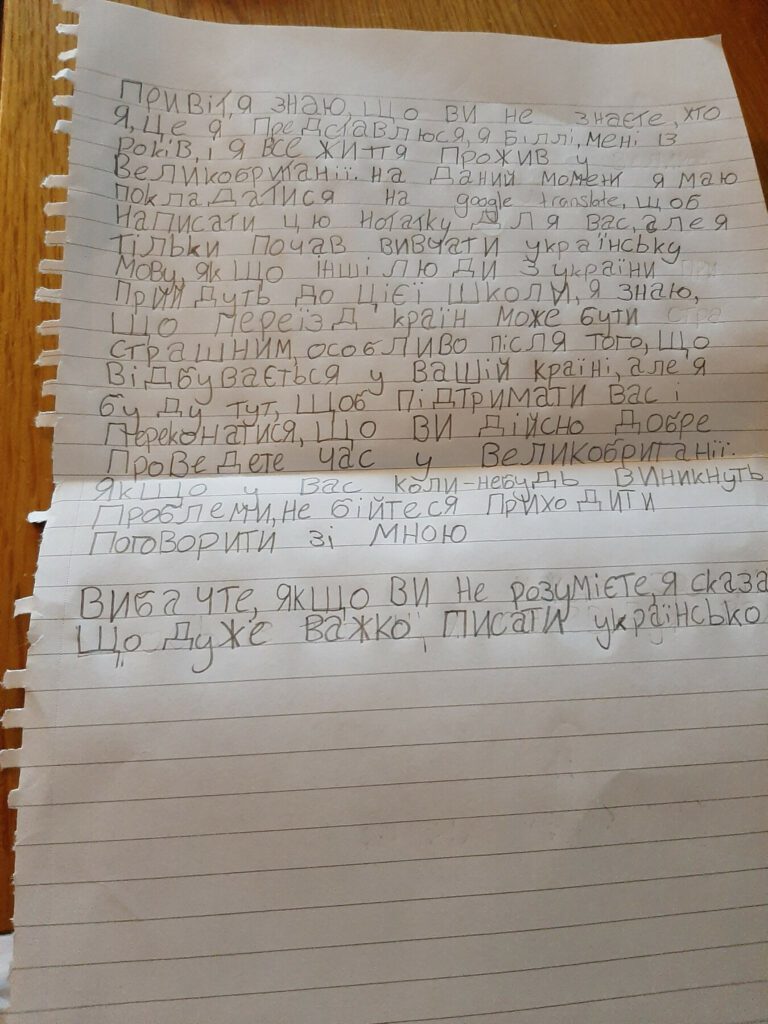 Привіт,я знаю, що ви не знаєте, хто
я, це я представлюся, я Біллі, мені 13
років, і я все життя прожив у
Великобританії. на даний момент я маю
покладатися на google translate, щоб
написати цю нотатку для вас, але я
тільки почав вивчати українську
мову, якщо інші люди з україни
прийдуть до цієї школи, я знаю,
що переїзд країн може бути
страшним, особливо після того, що
відбувається у вашій країні, але я
буду тут, щоб підтримати вас і
переконатися, що ви дійсно добре
проведете час у великобританії.
якщо у вас коли-небудь виникнуть
проблеми, не бійтеся приходити
поговорити зі мною
Вибачте, якщо ви не розумієте, я сказа
що дуже важко, писати українсько